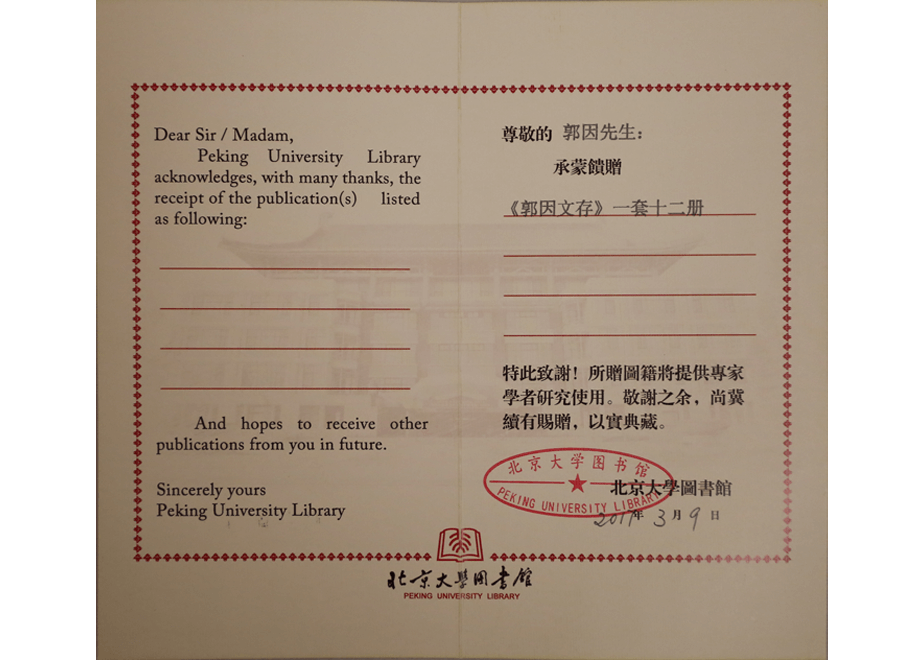 Dear Sir / Madam,
Peking University Library
acknowledges, with many thanks, the
receipt of the publication(s) listed
as following:
And hopes to receive other
publications from you in future.
Sincerely yours
Peking University Library
尊敬的 郭因先生：
承蒙饋贈
《郭因文存》一套十二册
特此致謝！所贈圖籍將提供專家
學者研究使用。敬謝之余，尚冀
續有賜贈，以實典藏。
北京大学图书馆
PEKING UNIVERSITY LIBRARY
北京大學圖書館
2017年 3月 9日
北京大學图書館
PEKING UNIVERSITY LIBRARY